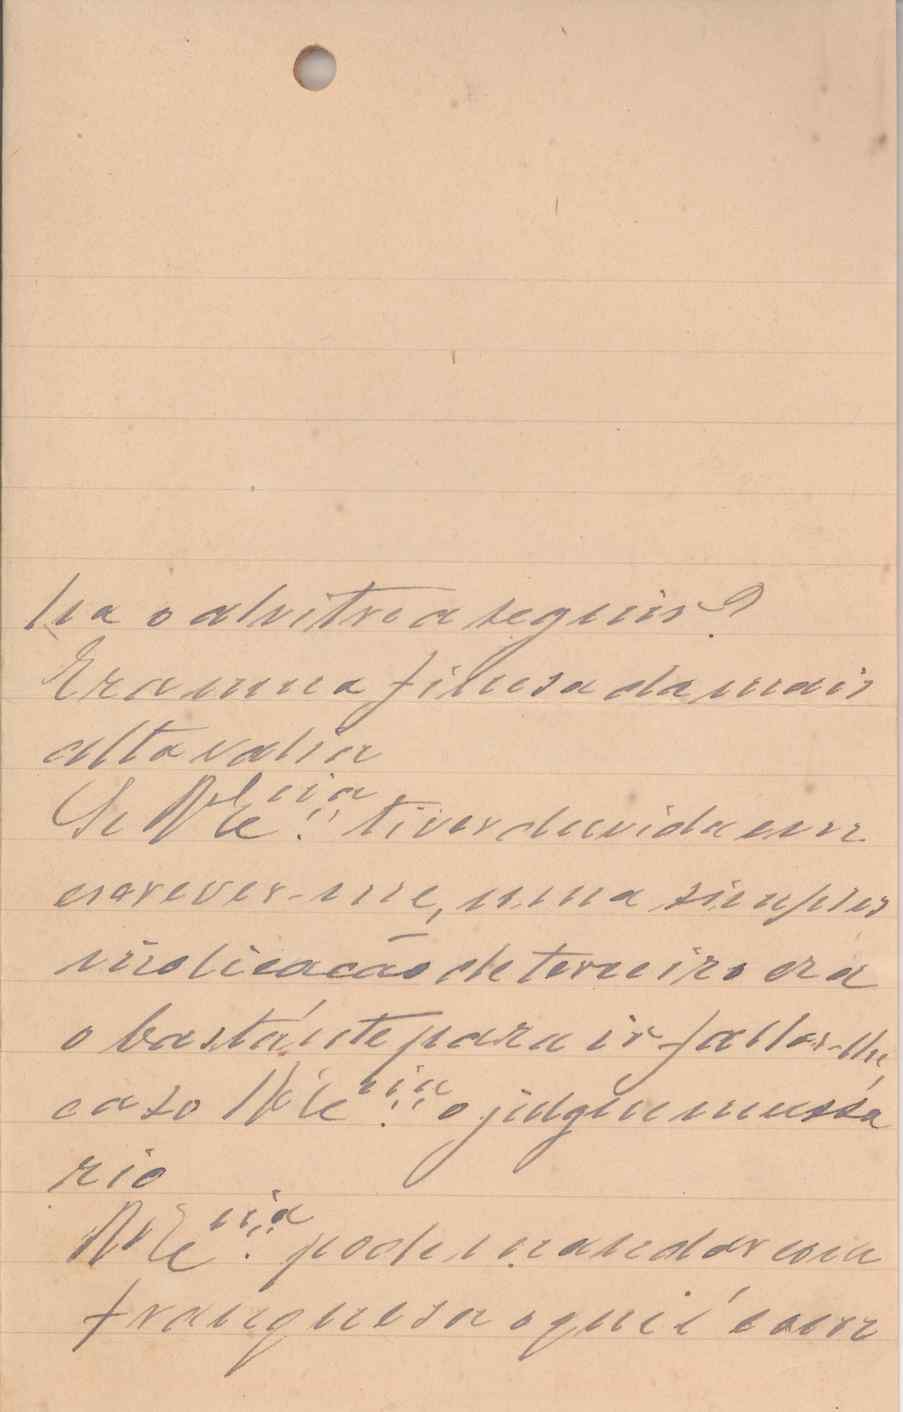 o alvitre a seguir?
Era uma finesa da mais
alta valia
Se V. Ex.cia tiver duvida em
escrever-me, uma simples
indicacão de terceiro era
o bastánte para ir fallar-lhe,
caso V. Ex.cia o julgue nessesa
rio
V. Ex.cia pode mandar com
franquesa o que é com